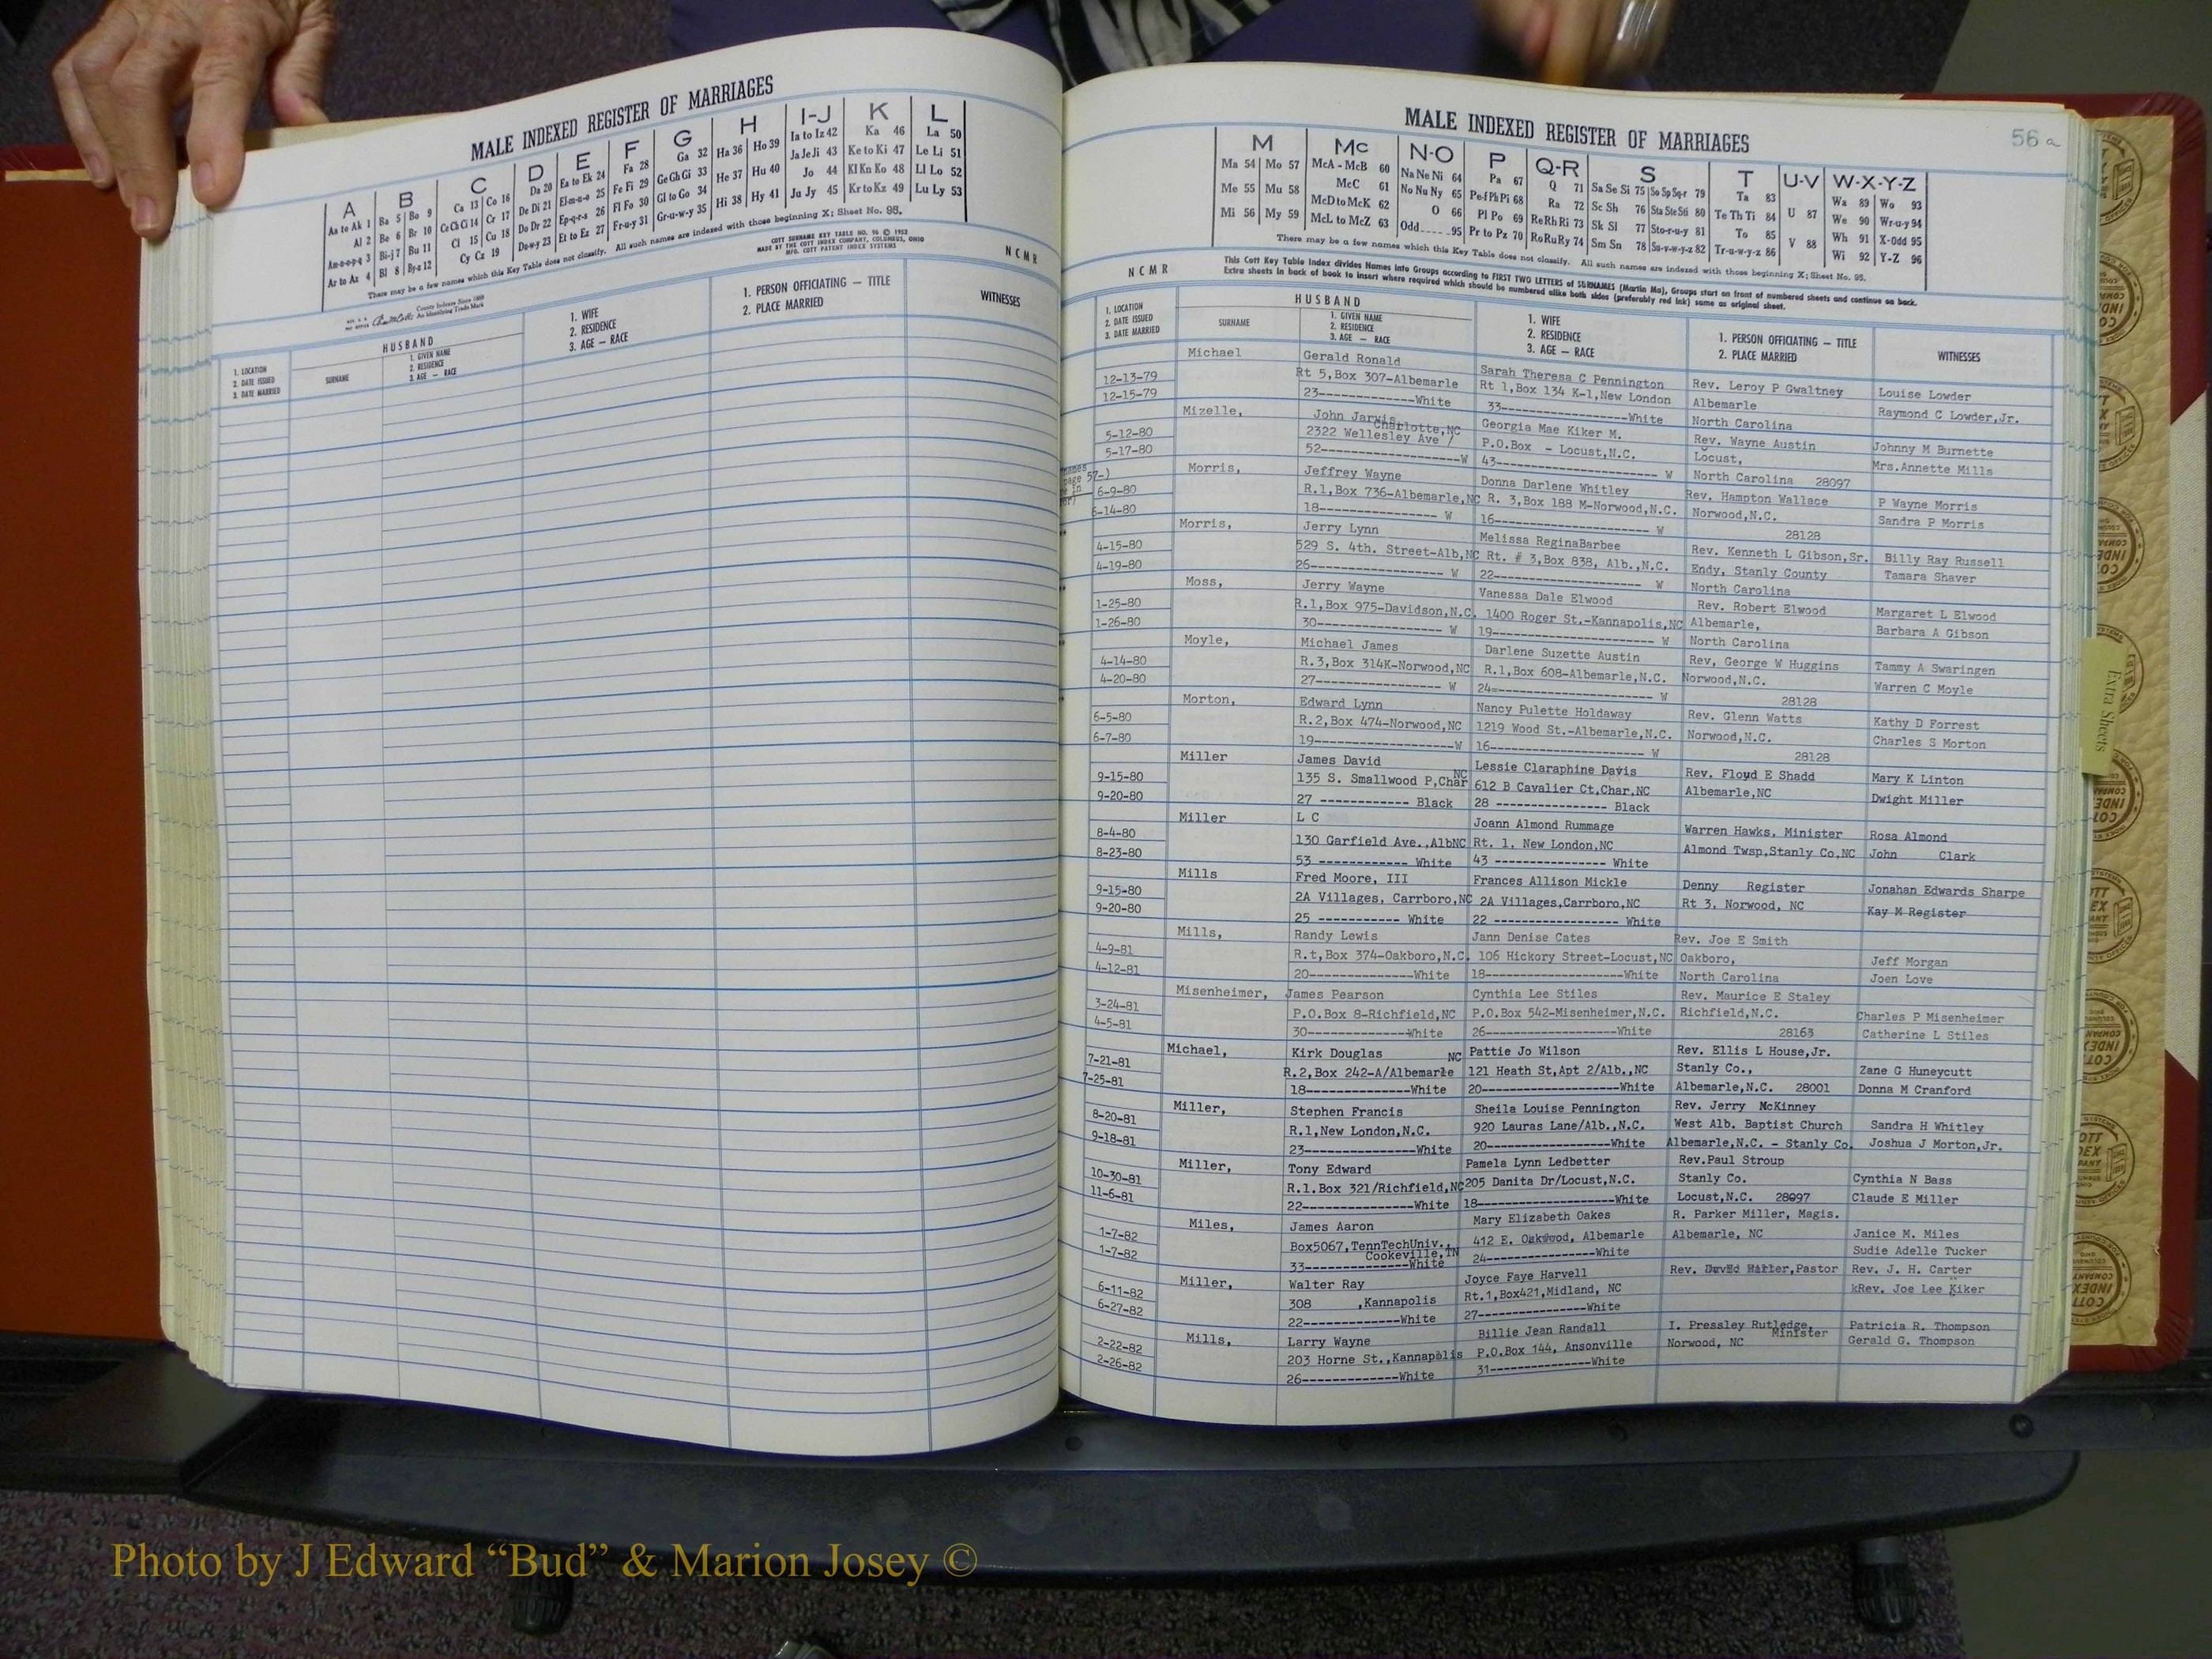 MALE INDEXED REGISTER OF MARRIAGES
A B C D E F G H I-J K L
Aa to Ak 1 Ba 5 Bo 9 Ca 13 Co 16 Da 20 Ea to Ek 24 Fa 28 Ga 32 Ha 36 Ho 39 Ia to Iz 42 Ka 46 La 50
Al 2 Be 6 Br 10 Ce Ch Ci 14 Cr 17 De Di 21 El-m-n-o 25 Fe Fi 29 Ge Gh Gi 33 He 37 Hu 40 Ja Je Ji 43 Ke to Ki 47 Le Li 51
Am-n-o-p-q 3 Bi-j 7 Bu 11 Cl 15 Cu 18 Do Dr 22 Ep-q-r-s 26 Fl Fo 30 Gl to Go 34 Hi 38 Hy 41 Jo 44 Kl Kn Ko 48 Ll Lo 52
Ar to Az 4 Bl 8 By-z 12 Cy Cz 19 Du-w-y 23 Et to Ez 27 Fr-u-y 31 Gr-u-w-y 35 Ju Jy 45 Kr to Kz 49 Lu Ly 53
There may be a few names which this Key Table does not classify. All such names are indexed with those beginning X; Sheet No. 95.
COTT SURNAME KEY TABLE NO. 96 © 1952
MADE BY THE COTT INDEX COMPANY, COLUMBUS, OHIO
MFG. COTT PATENT INDEX SYSTEMS
County Indexes Since 1888
An Identifying Trade Mark
NCMR
HUSBAND
1. LOCATION
2. DATE ISSUED
3. DATE MARRIED
SURNAME
1. GIVEN NAME
2. RESIDENCE
3. AGE — RACE
1. WIFE
2. RESIDENCE
3. AGE — RACE
1. PERSON OFFICIATING — TITLE
2. PLACE MARRIED
WITNESSES
MALE INDEXED REGISTER OF MARRIAGES
56 a
M Mc N-O P Q-R S T U-V W-X-Y-Z
Ma 54 Mo 57 McA - McB 60 Na Ne Ni 64 Pa 67 Q 71 Sa Se Si 75 So Sp Sq-r 79 Ta 83 U 87 Wa 89 Wo 93
Me 55 Mu 58 McC 61 No Nu Ny 65 Pe-f Ph Pi 68 Ra 72 Sc Sh 76 Sta Ste Sti 80 Te Th Ti 84 V 88 We 90 Wr-u-y 94
Mi 56 My 59 McD to McK 62 O 66 Pl Po 69 Re Rh Ri 73 Sk Sl 77 Sto-r-u-y 81 To 85 Wh 91 X-Odd 95
McL to McZ 63 Odd 95 Pr to Pz 70 Ro Ru Ry 74 Sm Sn 78 Su-v-w-y-z 82 Tr-u-w-y-z 86 Wi 92 Y-Z 96
There may be a few names which this Key Table does not classify. All such names are indexed with those beginning X; Sheet No. 95.
This Cott Key Table Index divides Names into Groups according to FIRST TWO LETTERS of SURNAMES (Martin Ma), Groups start on front of numbered sheets and continue on back.
Extra sheets in back of book to insert where required which should be numbered alike both sides (preferably red ink) same as original sheet.
NCMR
HUSBAND
1. LOCATION
2. DATE ISSUED
3. DATE MARRIED
SURNAME
1. GIVEN NAME
2. RESIDENCE
3. AGE — RACE
1. WIFE
2. RESIDENCE
3. AGE — RACE
1. PERSON OFFICIATING — TITLE
2. PLACE MARRIED
WITNESSES
Michael Gerald Ronald Sarah Theresa C Pennington Rev. Leroy P Gwaltney Louise Lowder
12-13-79 Rt 5,Box 307-Albemarle Rt 1,Box 134 K-1,New London Albemarle Raymond C Lowder,Jr.
12-15-79 23-------------White 33----------------White North Carolina
Mizelle, John Jarvis Georgia Mae Kiker M. Rev. Wayne Austin Johnny M Burnette
Charlotte,NC
5-12-80 2322 Wellesley Ave / P.O.Box - Locust,N.C. Locust, Mrs.Annette Mills
5-17-80 52------------------W 43---------------------- W North Carolina 28097
Morris, Jeffrey Wayne Donna Darlene Whitley Rev. Hampton Wallace P Wayne Morris
6-9-80 R.1,Box 736-Albemarle,NC R. 3,Box 188 M-Norwood,N.C. Norwood,N.C. Sandra P Morris
6-14-80 18---------------- W 16-------------------- W 28128
Morris, Jerry Lynn Melissa ReginaBarbee Rev. Kenneth L Gibson,Sr. Billy Ray Russell
4-15-80 529 S. 4th. Street-Alb,NC Rt. # 3,Box 838, Alb.,N.C. Endy, Stanly County Tamara Shaver
4-19-80 26----------------- W 22-------------------- W North Carolina
Moss, Jerry Wayne Vanessa Dale Elwood Rev. Robert Elwood Margaret L Elwood
1-25-80 R.1,Box 975-Davidson,N.C. 1400 Roger St.-Kannapolis,NC Albemarle, Barbara A Gibson
1-26-80 30---------------- W 19---------------------- W North Carolina
Moyle, Michael James Darlene Suzette Austin Rev, George W Huggins Tammy A Swaringen
4-14-80 R.3,Box 314K-Norwood,NC R.1,Box 608-Albemarle,N.C. Norwood,N.C. Warren C Moyle
4-20-80 27---------------- W 24---------------------- W 28128
Morton, Edward Lynn Nancy Pulette Holdaway Rev. Glenn Watts Kathy D Forrest
6-5-80 R.2,Box 474-Norwood,NC 1219 Wood St.-Albemarle,N.C. Norwood,N.C. Charles S Morton
6-7-80 19------------------W 16-------------------- W 28128
Miller James David Lessie Claraphine Davis Rev. Floyd E Shadd Mary K Linton
9-15-80 135 S. Smallwood P,Char NC 612 B Cavalier Ct,Char,NC Albemarle,NC Dwight Miller
9-20-80 27 ------------ Black 28 --------------- Black
Miller L C Joann Almond Rummage Warren Hawks, Minister Rosa Almond
8-4-80 130 Garfield Ave.,AlbNC Rt. 1, New London,NC Almond Twsp,Stanly Co,NC John Clark
8-23-80 53 ------------ White 43 --------------- White
Mills Fred Moore, III Frances Allison Mickle Denny Register Jonahan Edwards Sharpe
9-15-80 2A Villages, Carrboro,NC 2A Villages,Carrboro,NC Rt 3, Norwood, NC Kay M Register
9-20-80 25 ----------- White 22 ----------------- White
Mills, Randy Lewis Jann Denise Cates Rev. Joe E Smith
4-9-81 R.t,Box 374-Oakboro,N.C. 106 Hickory Street-Locust,NC Oakboro, Jeff Morgan
4-12-81 20--------------White 18-------------------White North Carolina Joen Love
Misenheimer, James Pearson Cynthia Lee Stiles Rev. Maurice E Staley
3-24-81 P.O.Box 8-Richfield,NC P.O.Box 542-Misenheimer,N.C. Richfield,N.C. Charles P Misenheimer
4-5-81 30-------------White 26------------------White 28163 Catherine L Stiles
Michael, Kirk Douglas NC Pattie Jo Wilson Rev. Ellis L House,Jr.
7-21-81 R.2,Box 242-A/Albemarle 121 Heath St,Apt 2/Alb.,NC Stanly Co., Zane G Huneycutt
7-25-81 18--------------White 20-------------------White Albemarle,N.C. 28001 Donna M Cranford
Miller, Stephen Francis Sheila Louise Pennington Rev. Jerry McKinney
8-20-81 R.1,New London,N.C. 920 Lauras Lane/Alb.,N.C. West Alb. Baptist Church Sandra H Whitley
9-18-81 23---------------White 20-----------------White Albemarle,N.C. - Stanly Co. Joshua J Morton,Jr.
Miller, Tony Edward Pamela Lynn Ledbetter Rev.Paul Stroup
10-30-81 R.1.Box 321/Richfield,NC 205 Danita Dr/Locust,N.C. Stanly Co. Cynthia N Bass
11-6-81 22---------------White 18-------------------White Locust,N.C. 28097 Claude E Miller
Miles, James Aaron Mary Elizabeth Oakes R. Parker Miller, Magis.
1-7-82 Box5067,TennTechUniv., 412 E. Oakwood, Albemarle Albemarle, NC Janice M. Miles
Cookeville,TN
1-7-82 33--------------White 24---------------White Sudie Adelle Tucker
Miller, Walter Ray Joyce Faye Harvell Rev. ,Pastor Rev. J. H. Carter
6-11-82 308 ,Kannapolis Rt.1,Box421,Midland, NC kRev. Joe Lee Kiker
6-27-82 22--------------White 27---------------White
Mills, Larry Wayne Billie Jean Randall I. Pressley Rutledge, Patricia R. Thompson
Minister
2-22-82 203 Horne St.,Kannapolis P.O.Box 144, Ansonville Norwood, NC Gerald G. Thompson
2-26-82 26-------------White 31--------------White
Extra Sheets
Photo by J Edward “Bud” & Marion Josey ©